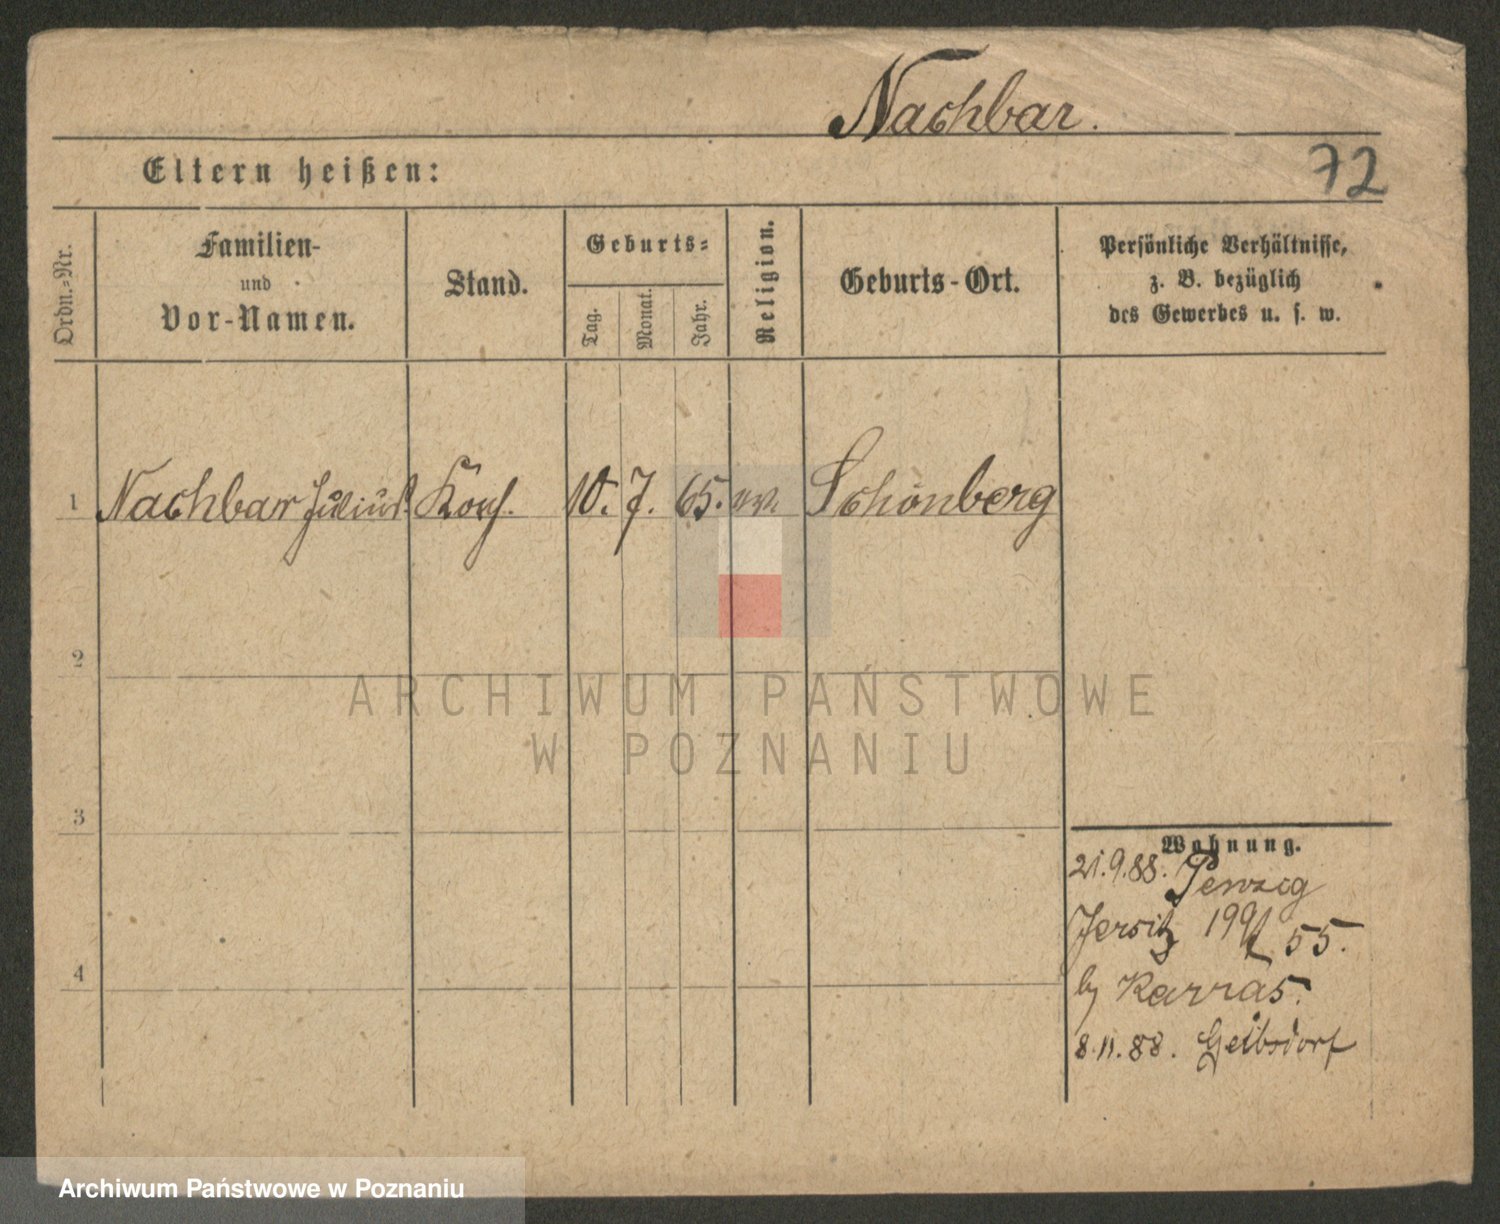 Nachbar.
72
Eltern heißen:
Ordn.-Nr.
Familien-
und
Vor-Namen.
Stand.
Geburts-
Tag.
Monat.
Jahr.
Religion.
Geburts-Ort.
Persönliche Verhältnisse,
z. B. bezüglich
des Gewerbes u. s. w.
1 Nachbar Julius. 10. 7. 65. ev. Schönberg
2
3
4
Wohnung.
21.9.88. Penzig
Jersitz 199/ 55.
by Karras.
8.11.88. Geibsdorf
ARCHIWUM PAŃSTWOWE
W POZNANIU
Archiwum Państwowe w Poznaniu